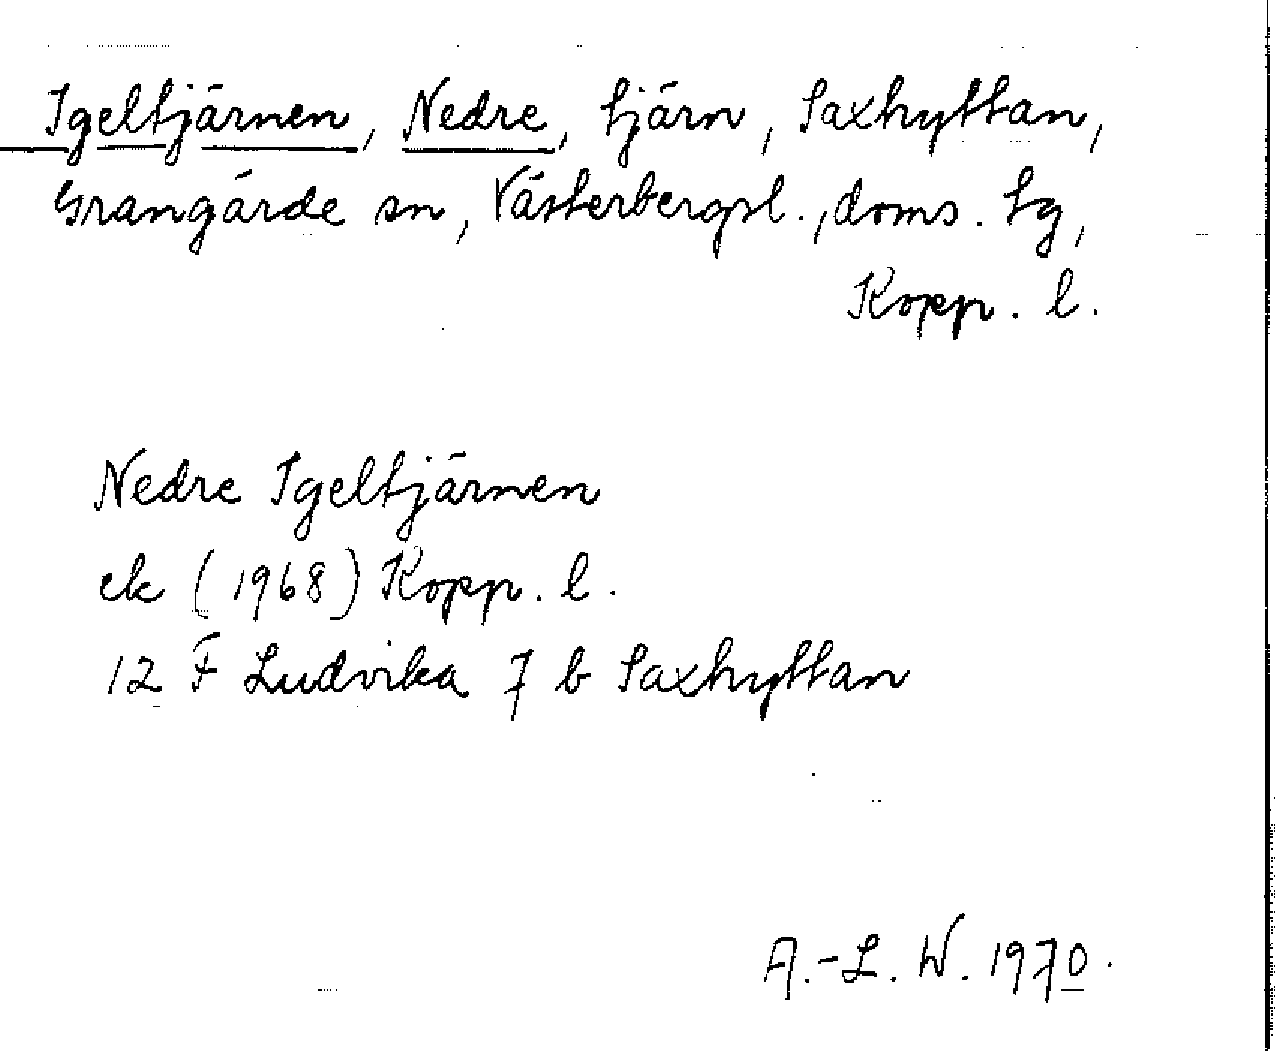 Igeltjärnen, Nedre, tjärn, Saxhyttan,
Grangärde sn, Västerbergsl., doms. tg,
Kopp. l.
Nedre Igeltjärnen
ek (1968) Kopp. l.
12 F Ludvika 7 b Saxhyttan
A.-L. W. 1970.